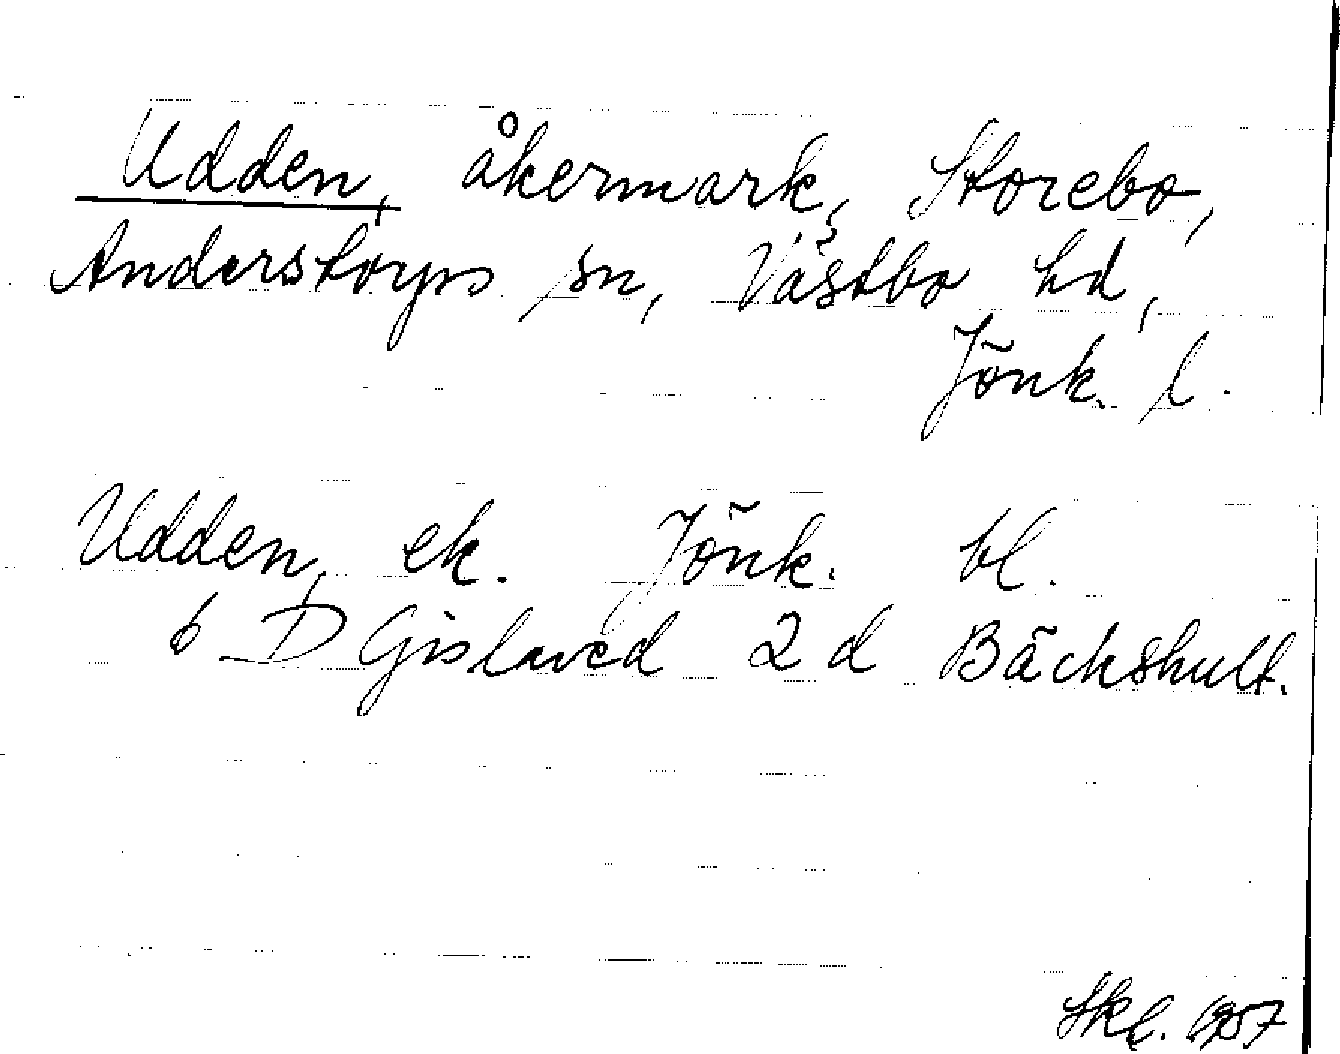 Udden, åkermark, Storebo,
Anderstorps sn, Västbo hd,
Jönk. l.
Udden, ek. Jönk. bl.
6 D Gislaved 2 d Bäckshult.
Skl. 1957